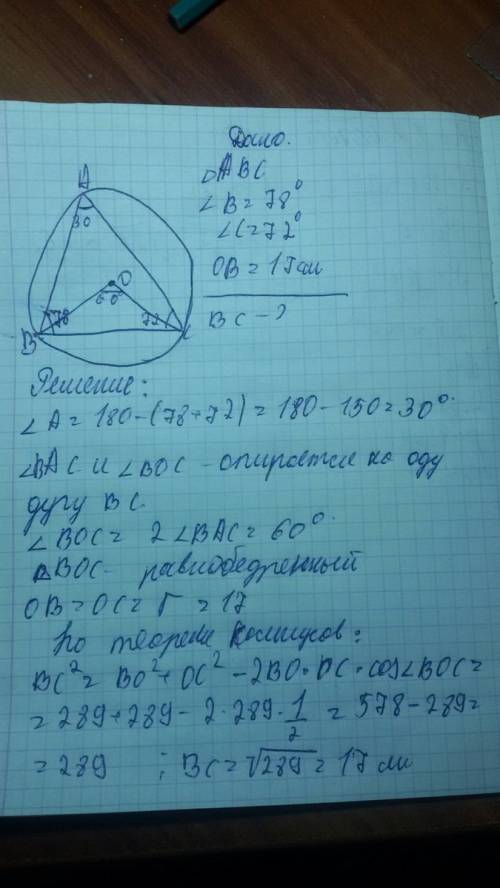 Дано.
△ABC
∠B=78°
∠C=72°
OB=17см
BC-?
A
30
O
60°
78
72
B
C
Решение:
∠A=180-(78+72)=180-150=30°.
∠BAC и ∠BOC - опирается на оду
дугу BC.
∠BOC= 2∠BAC=60°.
△BOC- равнобедренный
OB=OC=r=17
по теореме косинусов:
BC²=BO²+OC²-2BO·OC·cos∠BOC=
=289+289-2·289·1/2=578-289=
=289 ; BC=√289=17 см